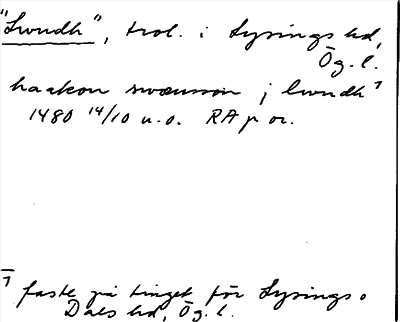 "Lwndh", trol. i Lysings hd,
Ög. l.
haakon swænsson j lwndh 1
1480 14/10 u.o. RA p or.
1 faste på tinget för Lysings o
Dals hd, Ög. l.